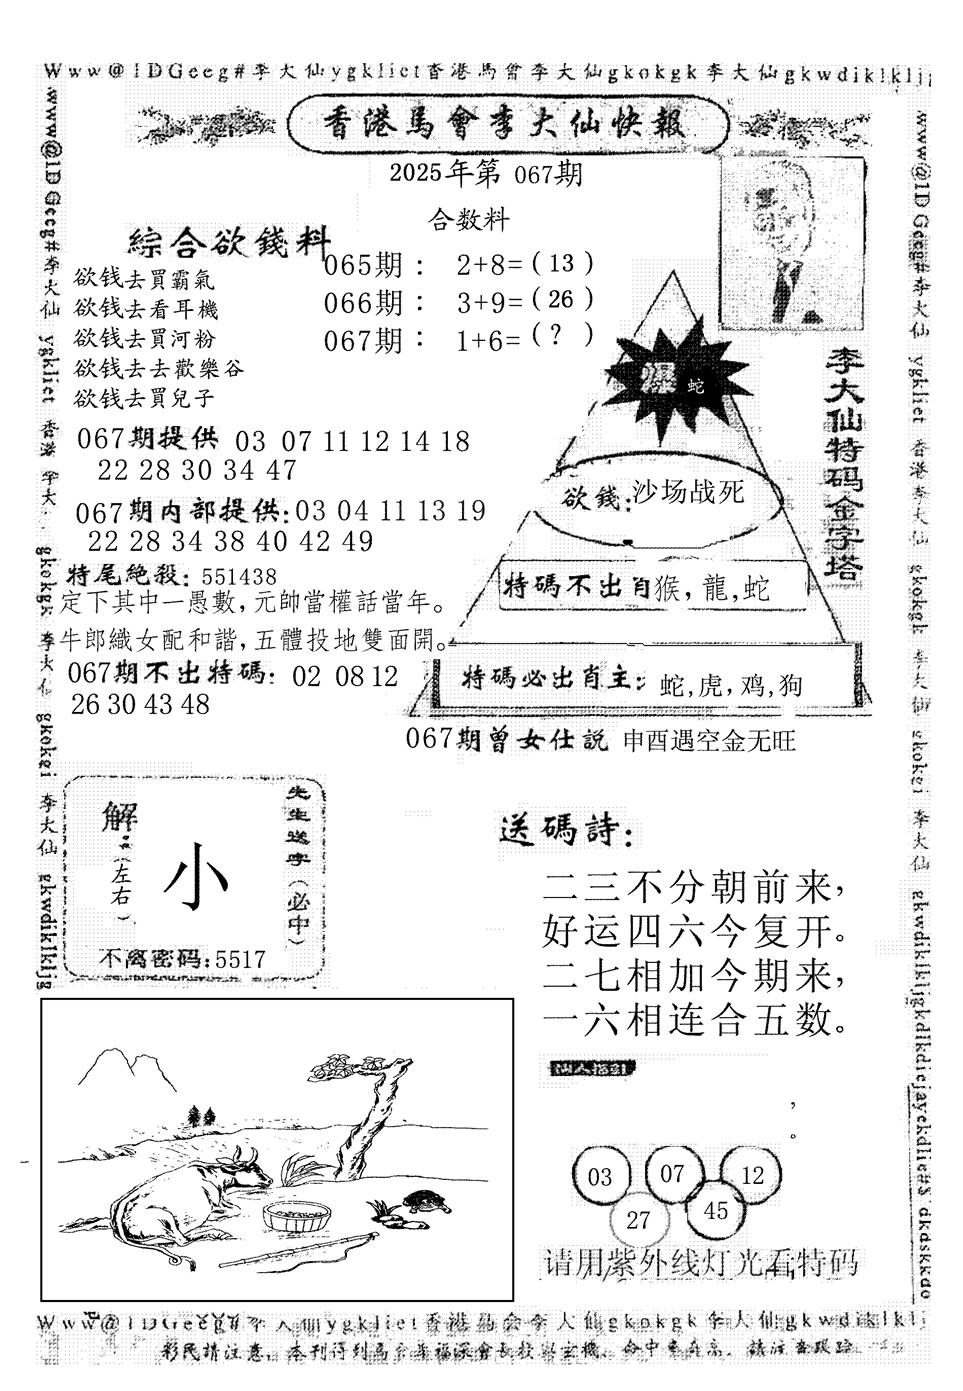 Www@1DGeeg#李大仙ygklict香港馬會李大仙gkokgk李大仙gkwdiklklj
香港馬會李大仙快報
2025年第 067期
合数料
綜合欲錢料
欲钱去買霸氣
欲钱去看耳機
欲钱去買河粉
欲钱去去歡樂谷
欲钱去買兒子
065期： 2+8=(13)
066期： 3+9=(26)
067期： 1+6=(?)
067期提供 03 07 11 12 14 18
22 28 30 34 47
067期内部提供:03 04 11 13 19
22 28 34 38 40 42 49
特尾絶殺: 551438
定下其中一愚數,元帥當權話當年。
牛郎織女配和諧,五體投地雙面開。
067期不出特碼: 02 08 12
26 30 43 48
李大仙特码金字塔
爆 蛇
欲錢:沙场战死
特碼不出肖猴, 龍,蛇
特碼必出肖主: 蛇,虎,鸡,狗
067期曾女仕説 申酉遇空金无旺
解:(左右)
小
先生送字(必中)
不离密码:5517
送碼詩:
二三不分朝前来,
好运四六今复开。
二七相加今期来,
一六相连合五数。
仙人指引
,
。
03 07 12
27 45
请用紫外线灯光看特码
Www@1DGeeg#李大仙ygklict香港馬會李大仙gkokgk李大仙gkwdiklklj